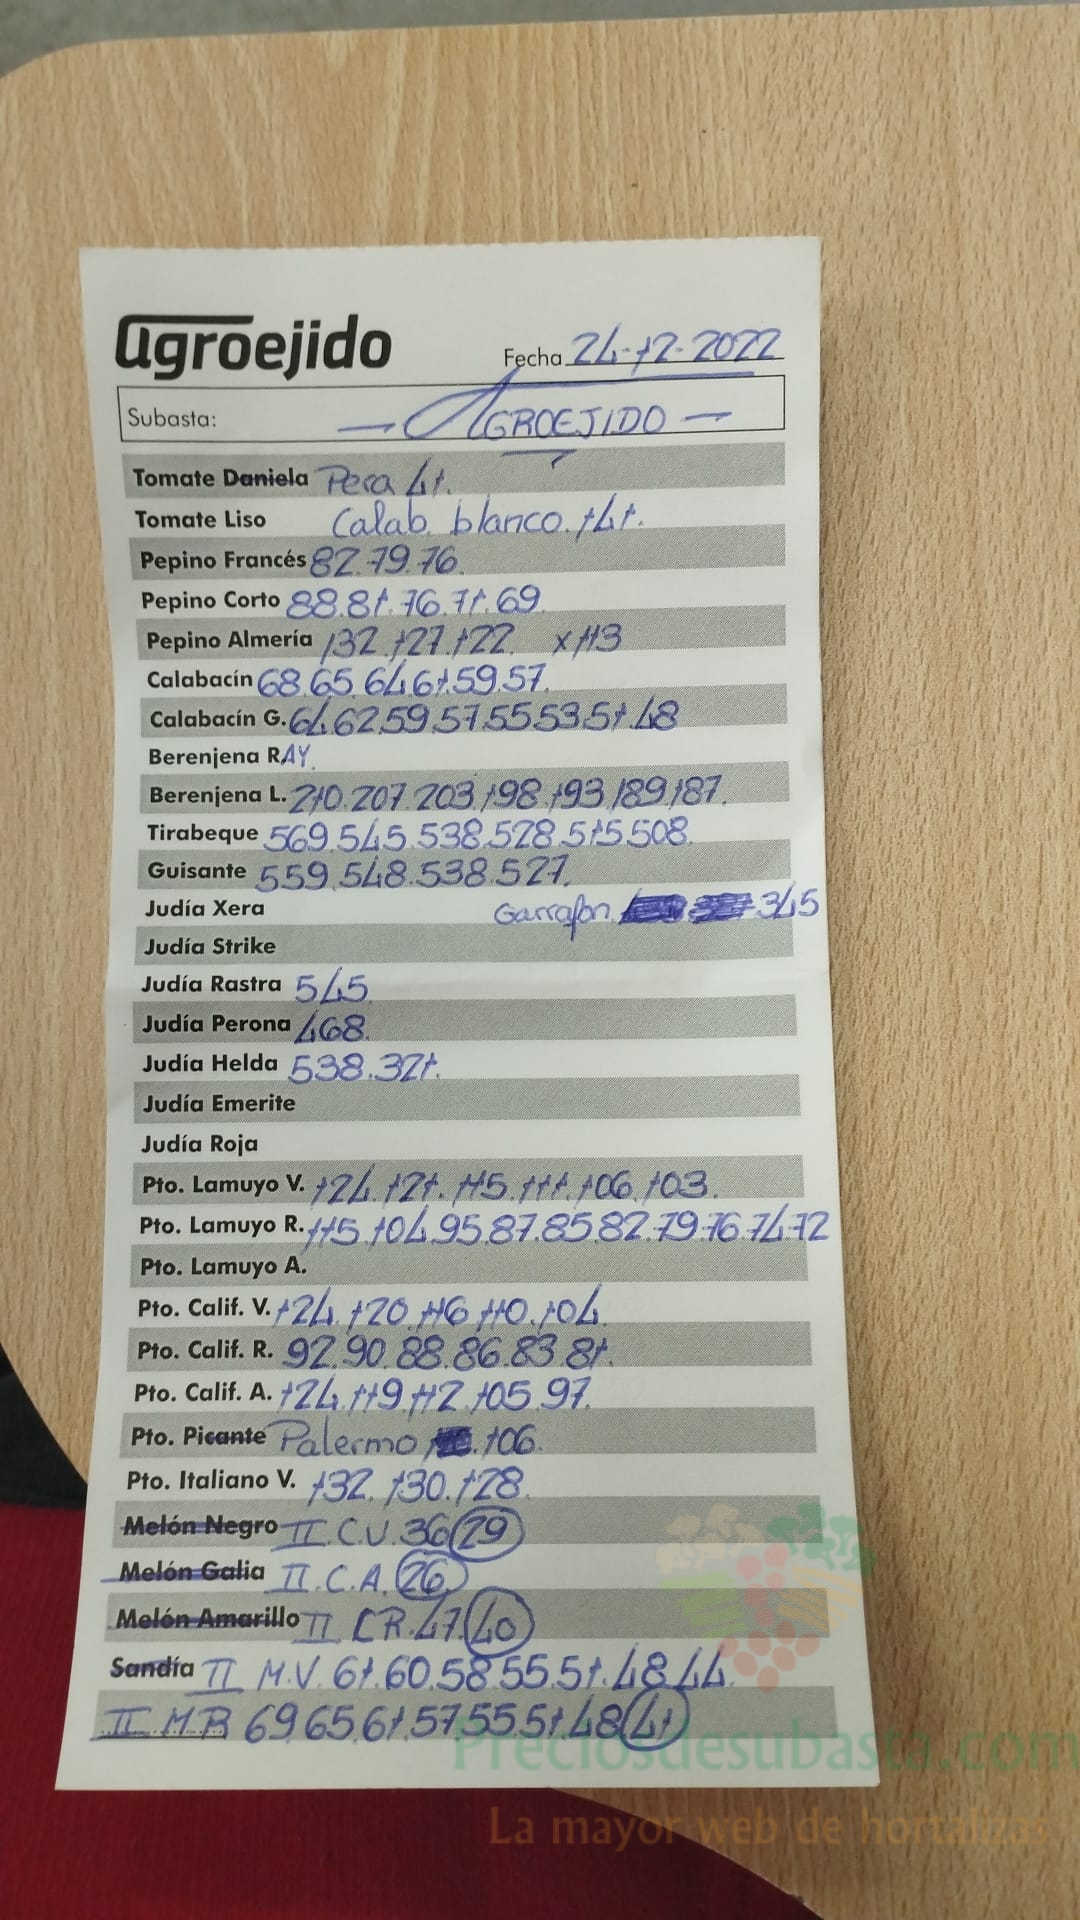 agroejido
Fecha 24-12-2022
Subasta: - AGROEJIDO -
Tomate Daniela Pera 41.
Tomate Liso Calab. blanco. 141.
Pepino Francés 82.79.76.
Pepino Corto 88.81.76.71.69.
Pepino Almería 132.127.122. x 113
Calabacín 68.65.64.61.59.57.
Calabacín G. 64.62.59.57.55.53.51.48
Berenjena RAY.
Berenjena L. 210.207.203.198.193.189.187.
Tirabeque 569.545.538.528.515.508.
Guisante 559.548.538.527.
Judía Xera Garrafon 345
Judía Strike
Judía Rastra 545.
Judía Perona 468.
Judía Helda 538.321.
Judía Emerite
Judía Roja
Pto. Lamuyo V. 124.121.115.111.106.103.
Pto. Lamuyo R. 115.104.95.87.85.82.79.76.74.72
Pto. Lamuyo A.
Pto. Calif. V. 124.120.116.110.104.
Pto. Calif. R. 92.90.88.86.83.81.
Pto. Calif. A. 124.119.112.105.97.
Pto. Picante Palermo .106.
Pto. Italiano V. 132.130.128.
Melón Negro II C.V. 36 29
Melón Galia II.C.A. 26
Melón Amarillo II CR.47.40
Sandía II M.V. 61.60.58.55.51.48.44.
II MR 69.65.61.57.55.51.48 41
Preciosdesubasta.com
La mayor web de hortalizas